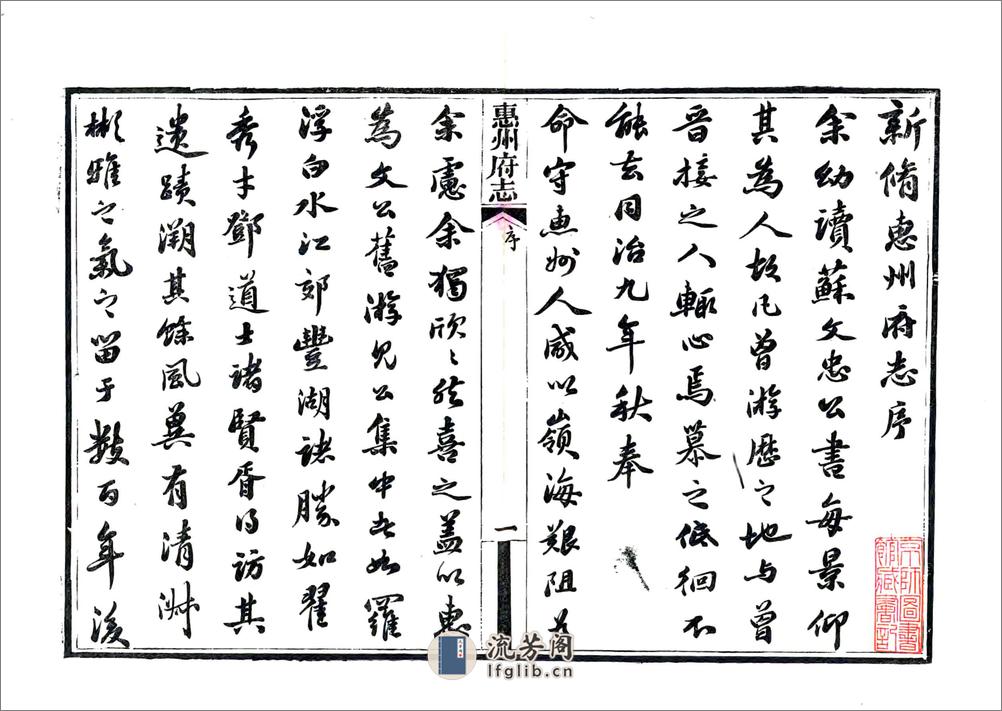 新脩惠州府志序
余幼讀蘇文忠公書每景仰
其為人故凡曾游歷之地與曾
晉接之人輒心焉慕之低徊不
能去同治九年秋奉
命守惠州人咸以嶺海艱阻為
惠州府志
序
一
余慮余獨欣〻然喜之蓋以惠
為文公舊游見公集中者如羅
浮白水江郊豐湖諸勝如翟
秀才鄧道士諸賢胥得訪其
遺蹟溯其餘風冀有清淋
彬雅之氣之留于數百年後
京師圖書
館藏書記
流芳阁
lfglib.cn